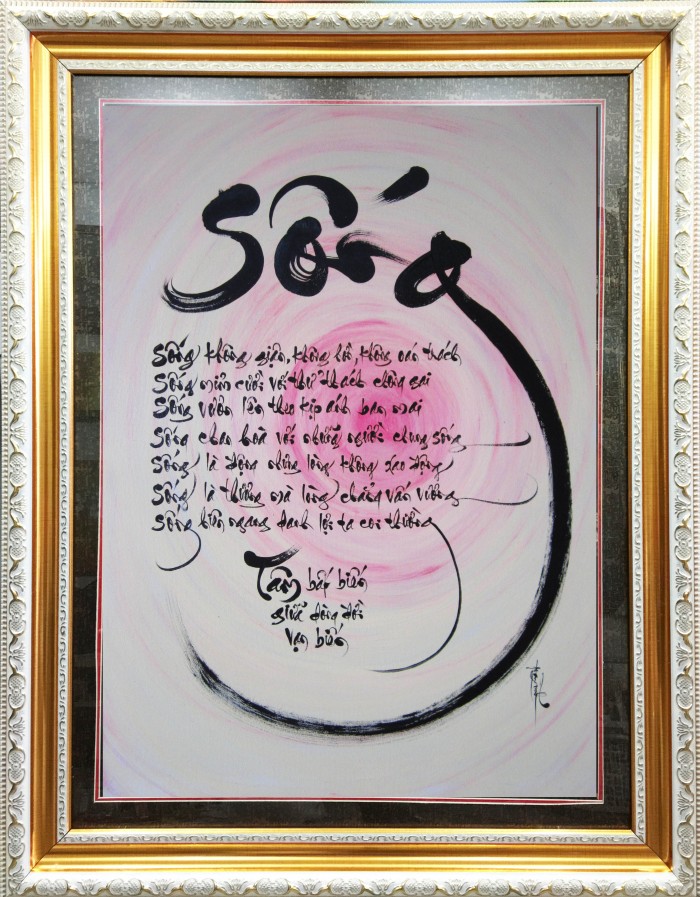 Sống
Sống không giận, không hờn, không oán trách
Sống mỉm cười với thử thách chông gai
Sống vươn lên theo kịp ánh ban mai
Sống chan hoà với những người chung sống
Sống là động nhưng lòng không xao động
Sống là thương mà lòng chẳng vấn vương
Sống hiên ngang danh lợi ta coi thường
Tâm bất biến
giữa dòng đời
vạn biến